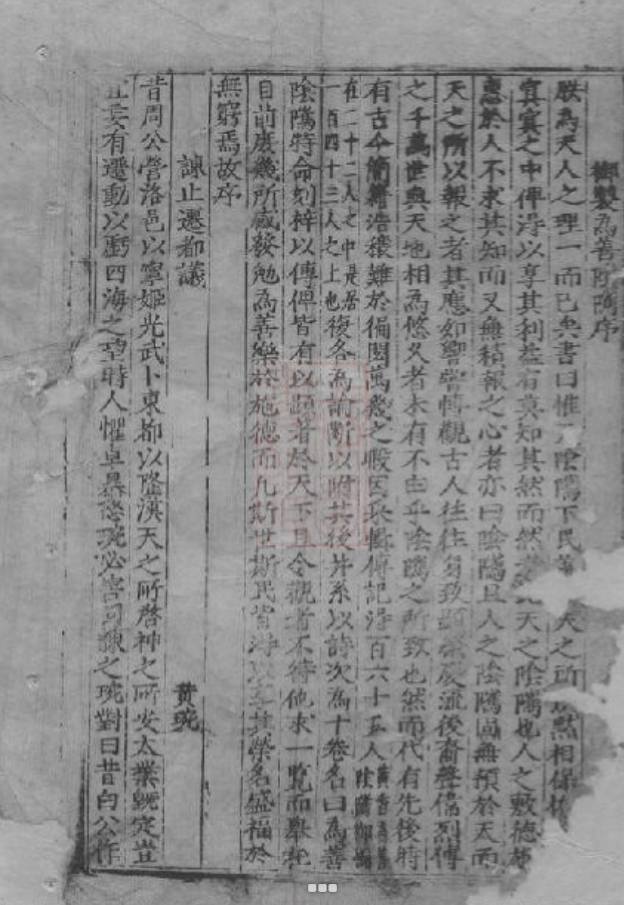 御製為善陰隲序
朕為天人之理一而已矣書曰惟天陰隲下民
冥冥之中俾得以享其利益有莫知其然而然者此天之陰隲也人之敷德施
惠於人不求其知而又無責報之心者亦曰陰隲且人之陰隲固無預於天而
天之所以報之者其應如響嘗博觀古人往往身致顯榮慶流後裔聲偉烈傳
之千萬世與天地相為悠久者未有不由乎陰隲之所致也然而代有先後時
有古今簡籍浩穰難於徧閱萬幾之暇因采輯傳記得百六十五人
在二十二人之中是居一百四十三人之上也復各為論斷以附其後并系以詩次為十卷名曰為善
陰隲特命刻梓以傳俾皆有以顯著於天下且令觀者不待他求一覽而舉在
目前庶幾所感發勉為善樂於施德而凡斯世斯民皆得以享其榮名盛福於
無窮焉故序
諫止遷都議 黃琬
昔周公營洛邑以寧姬光武卜東都以隆漢天之所啓神之所安大業既定豈
宜妄有遷動以虧四海之望時人懼卓暴怒琬必害固諫之琬對曰昔白公作